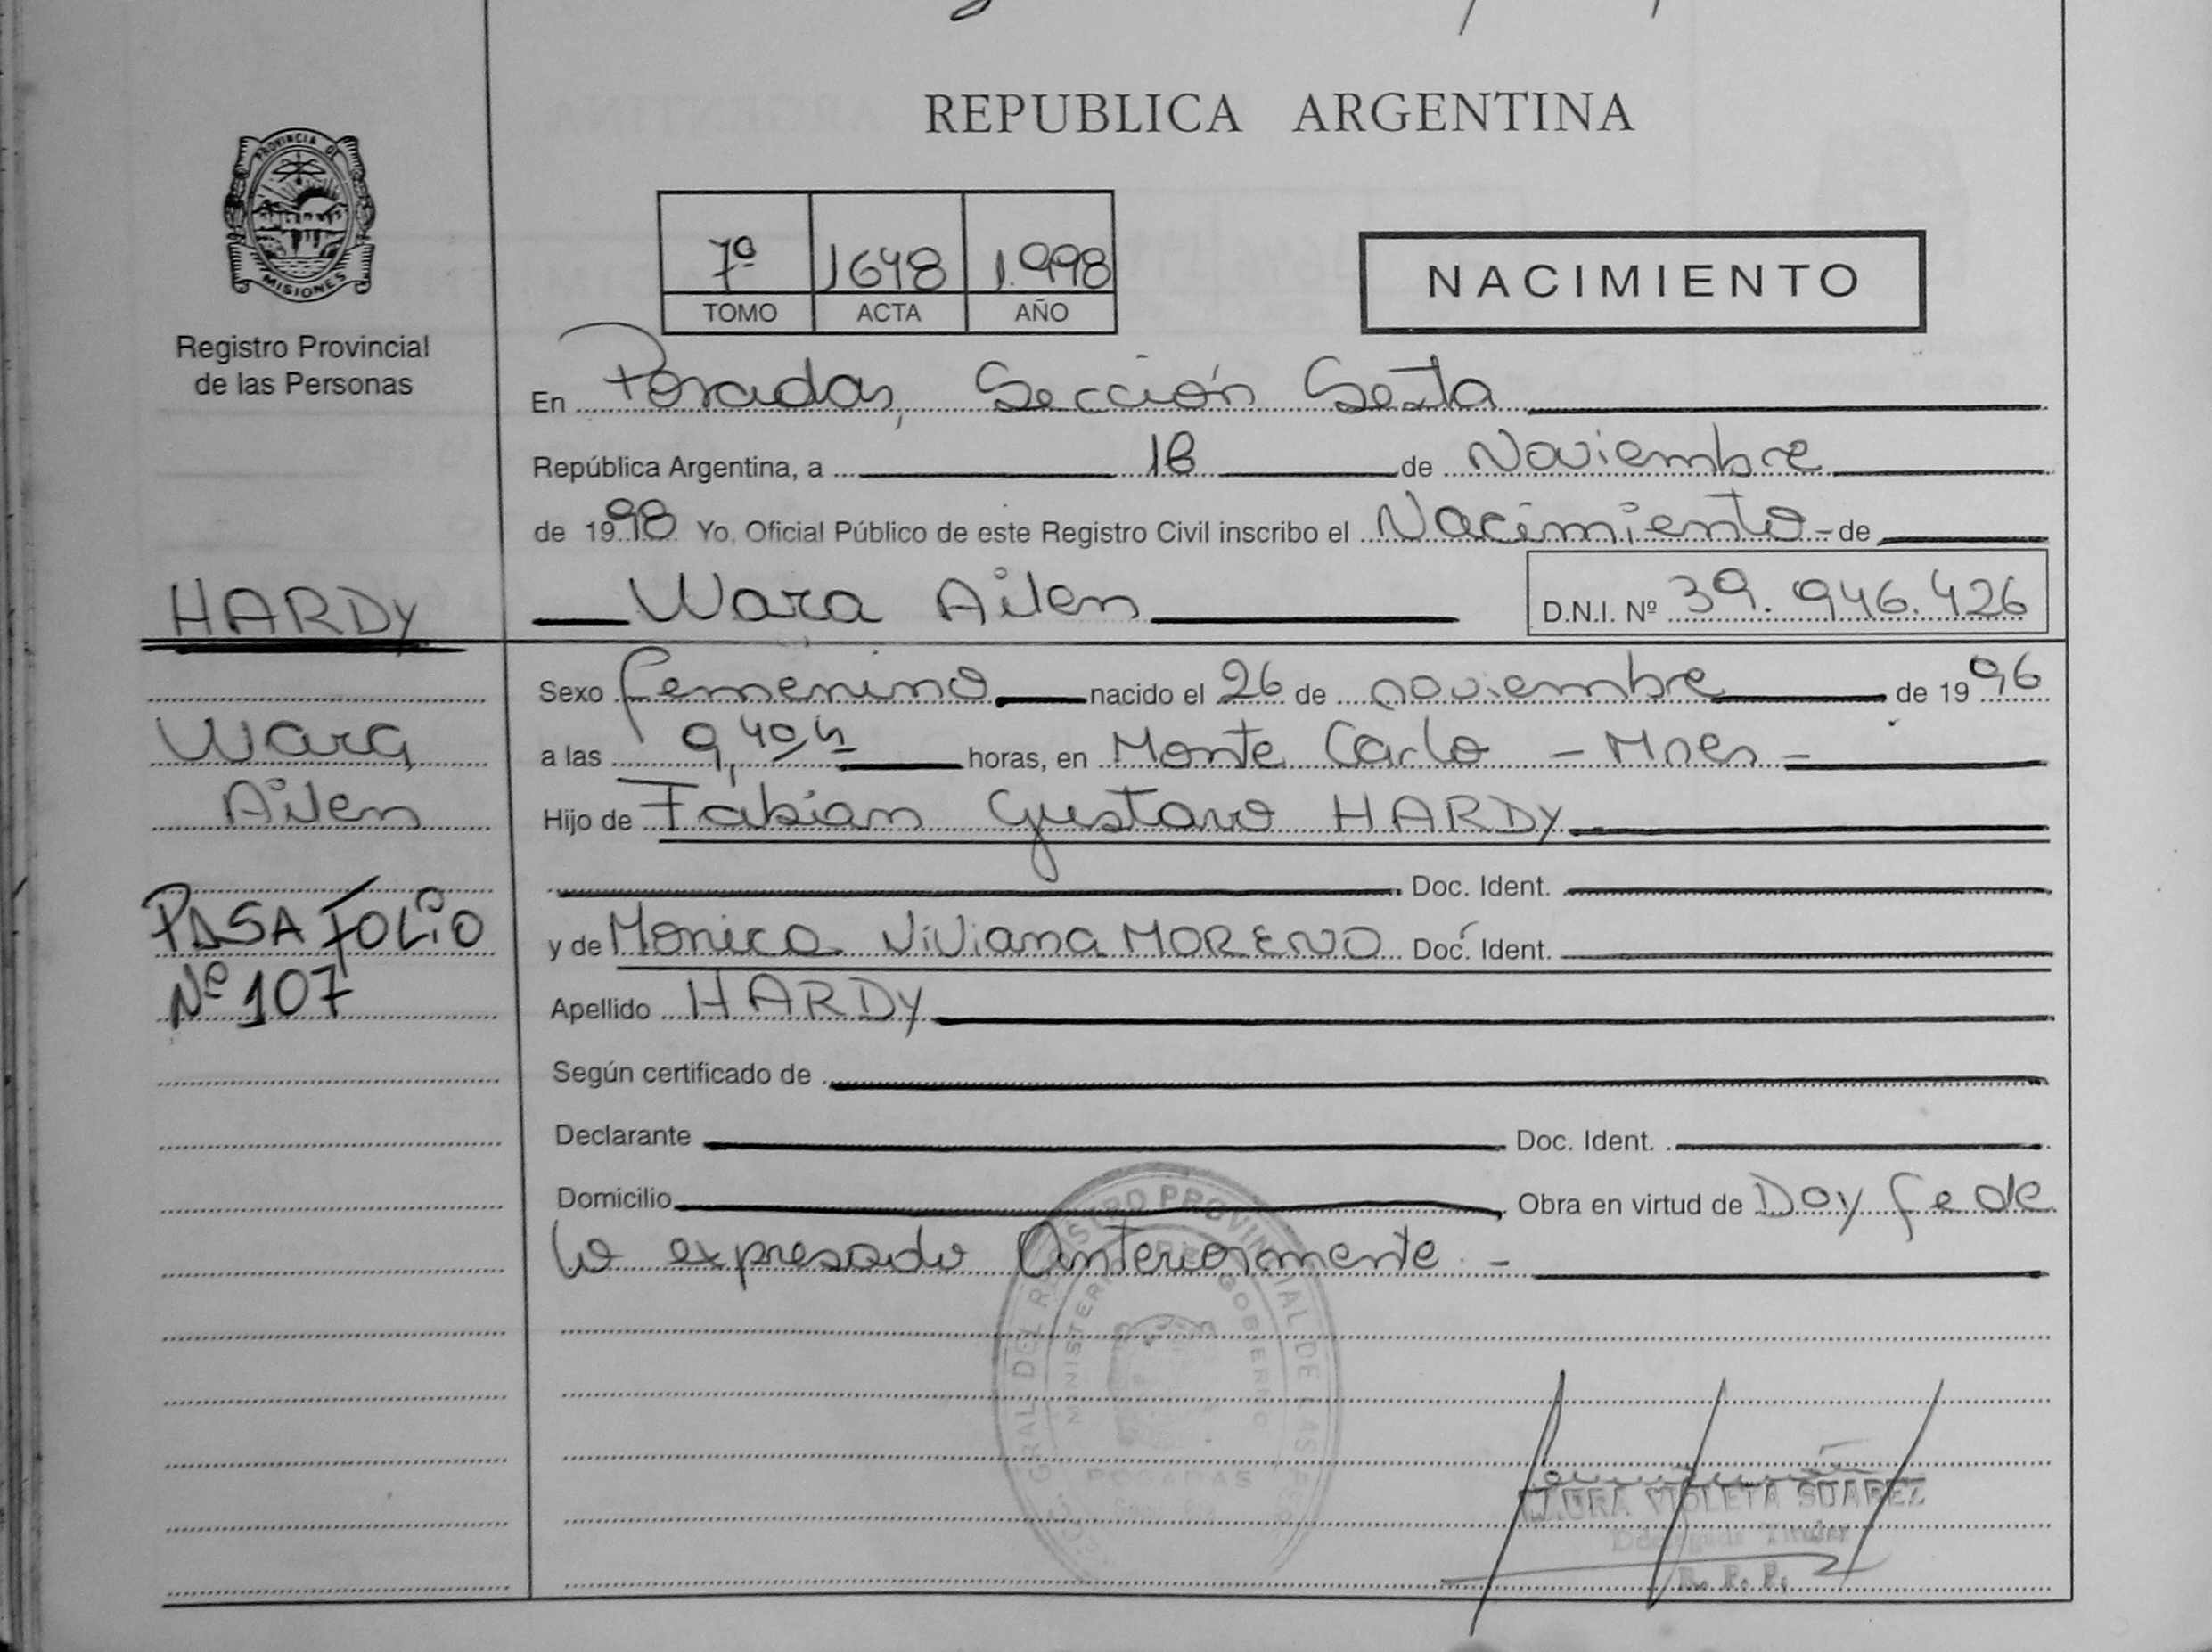 REPUBLICA ARGENTINA
PROVINCIA DE
MISIONES
Registro Provincial
de las Personas
7º 1648 1.998
TOMO ACTA AÑO
NACIMIENTO
En Posadas, Sección Sexta
República Argentina, a 18 de Noviembre
de 1998 Yo, Oficial Público de este Registro Civil inscribo el Nacimiento - de
Wara Ailen
D.N.I. Nº 39.946.426
HARDY
Wara
Ailen
PASA FOLIO
Nº 107
Sexo femenino nacido el 26 de noviembre de 1996
a las 9,40 h horas, en Monte Carlo - Mnes -
Hijo de Fabian Gustavo HARDY
Doc. Ident.
y de Monica Viviana MORENO Doc. Ident.
Apellido HARDY
Según certificado de
Declarante Doc. Ident.
Domicilio Obra en virtud de Doy fe de
lo expresado Anteriormente . -
GRAL. DEL REGISTRO PROVINCIAL DE LAS
MINISTERIO DE GOBIERNO
POSADAS
LAURA VIOLETA SUAREZ
Delegada Titular
R. P. P.